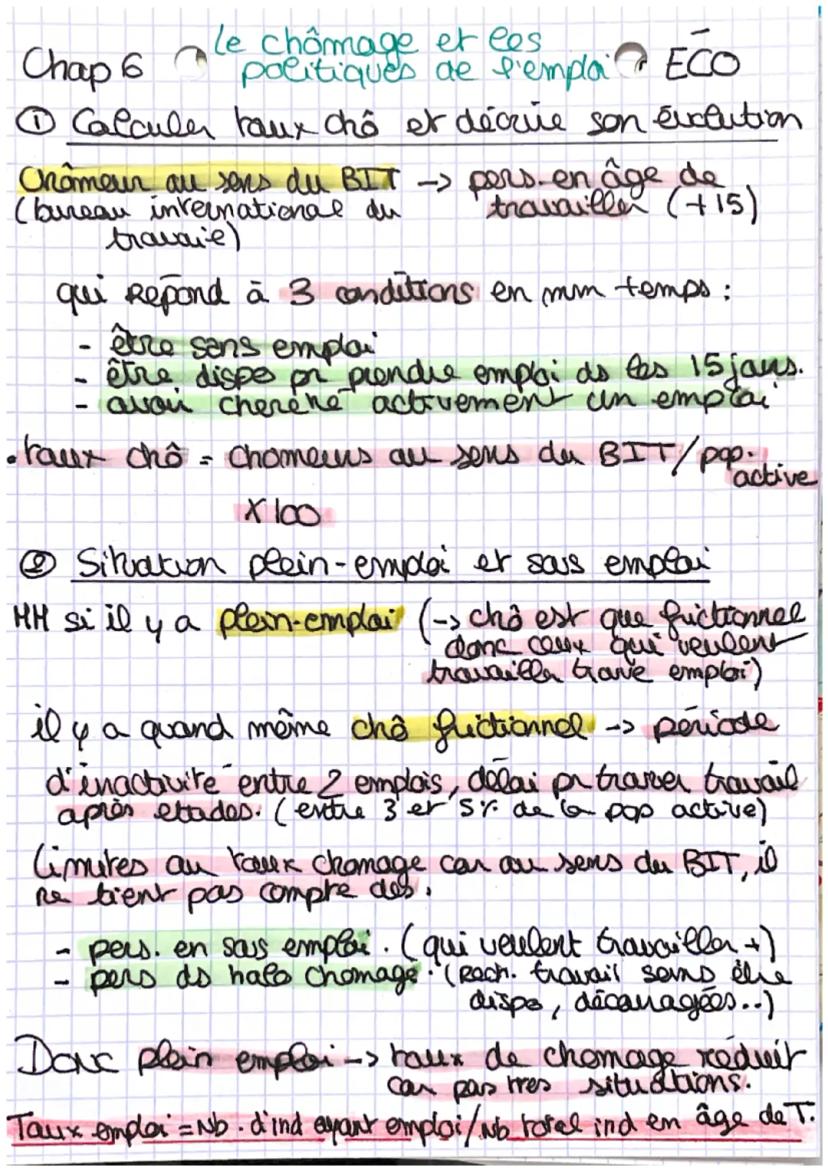 Le chômage et les
Chap 6 politiques de l'emploi ECO
① Calculer taux chô et décrire son évolution
Chômeur au sens du BIT -> pers. en âge de
(bureau international du travailler (+15)
travail)
qui répond à 3 conditions en mm temps :
- être sans emploi
- être dispo pr prendre emploi ds les 15 jours.
- avoir cherché activement un emploi
• taux chô = chomeurs au sens du BIT / pop. active
X 100
② Situation plein-emploi et sous emploi
MM si il y a plein-emploi (-> chô est que frictionnel
donc ceux qui veulent
travailler trouve emploi)
il y a quand même chô frictionnel -> période
d'inactivité entre 2 emplois, délai pr trouver travail
après etudes. (entre 3 et 5% de la pop active)
Limites au taux chomage car au sens du BIT, il
ne tient pas compte des :
- pers. en sous emploi. (qui veulent travailler +)
- pers ds halo chomage. (Rech. travail sans être
dispo, découragées..)
Donc plein emploi -> taux de chomage réduit
car pas ttes situations.
Taux emploi = Nb. d'ind ayant emploi / Nb total ind en âge de T.